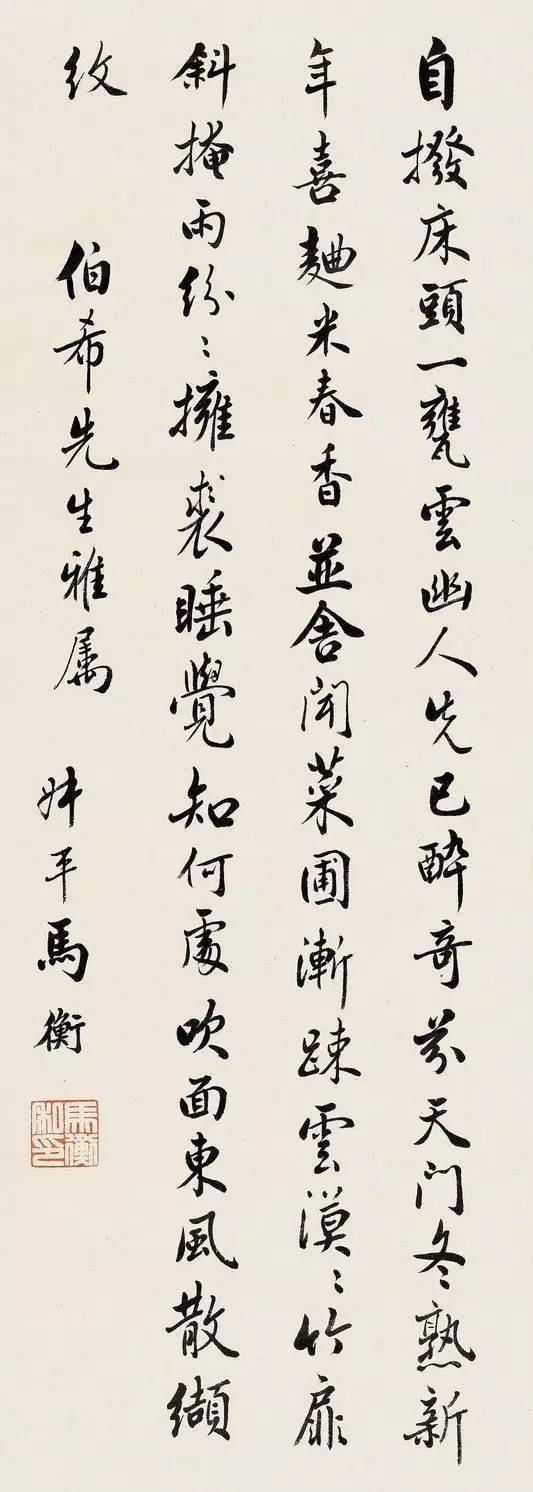 自撥床頭一甕雲幽人先已醉奇芬天门冬熟新
年喜麯米春香並舍聞菜圃漸踈雲漠〻竹扉
斜掩雨紛〻擁裘睡覺知何處吹面東風散纈
紋
伯希先生雅属
叔平馬衡
馬衡私印